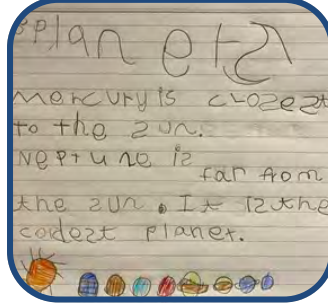 Planets
mercury is clozezt
to the zun.
Neptune iz
far from
the zun. It iz the
codezt planet.